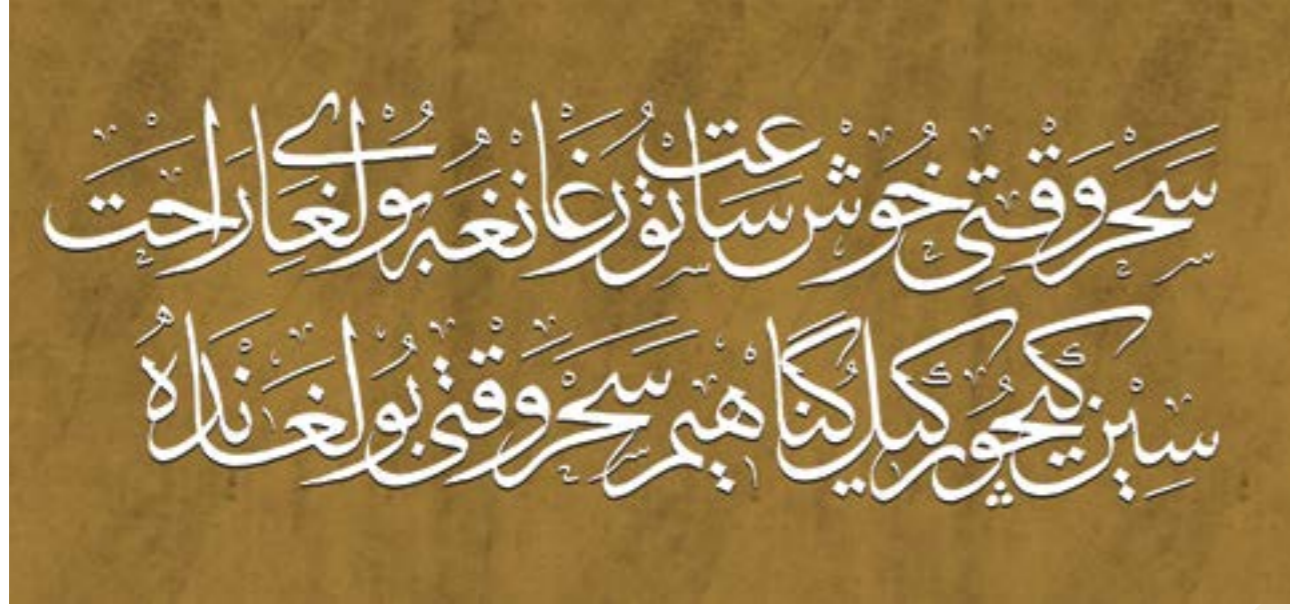 سَحَر وَقْتِی خُوش سَاعَت تُورغَانغَه بُولغَای رَاحَت
سِین کیچُورگیل گُنَاهیم سَحَر وَقْتِی بُولغَنْدَه